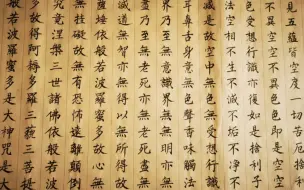 見五蘊皆空度一切苦厄捨
不異空空不異色色即是空
色受想行識亦復如是捨利子
空相不生不滅不垢不淨不
是故空中無色無受想行識
鼻舌身意無色聲香味觸法
乃至無意識界無無明亦無
盡乃至無老死亦無老死盡
滅道無智亦無得以無所得
依般若波羅蜜多故心無
無罣礙故無有恐怖遠離顛倒
究竟涅槃三世諸佛依般若
多故得阿耨多羅三藐三菩提
般若波羅蜜多是大神咒是大